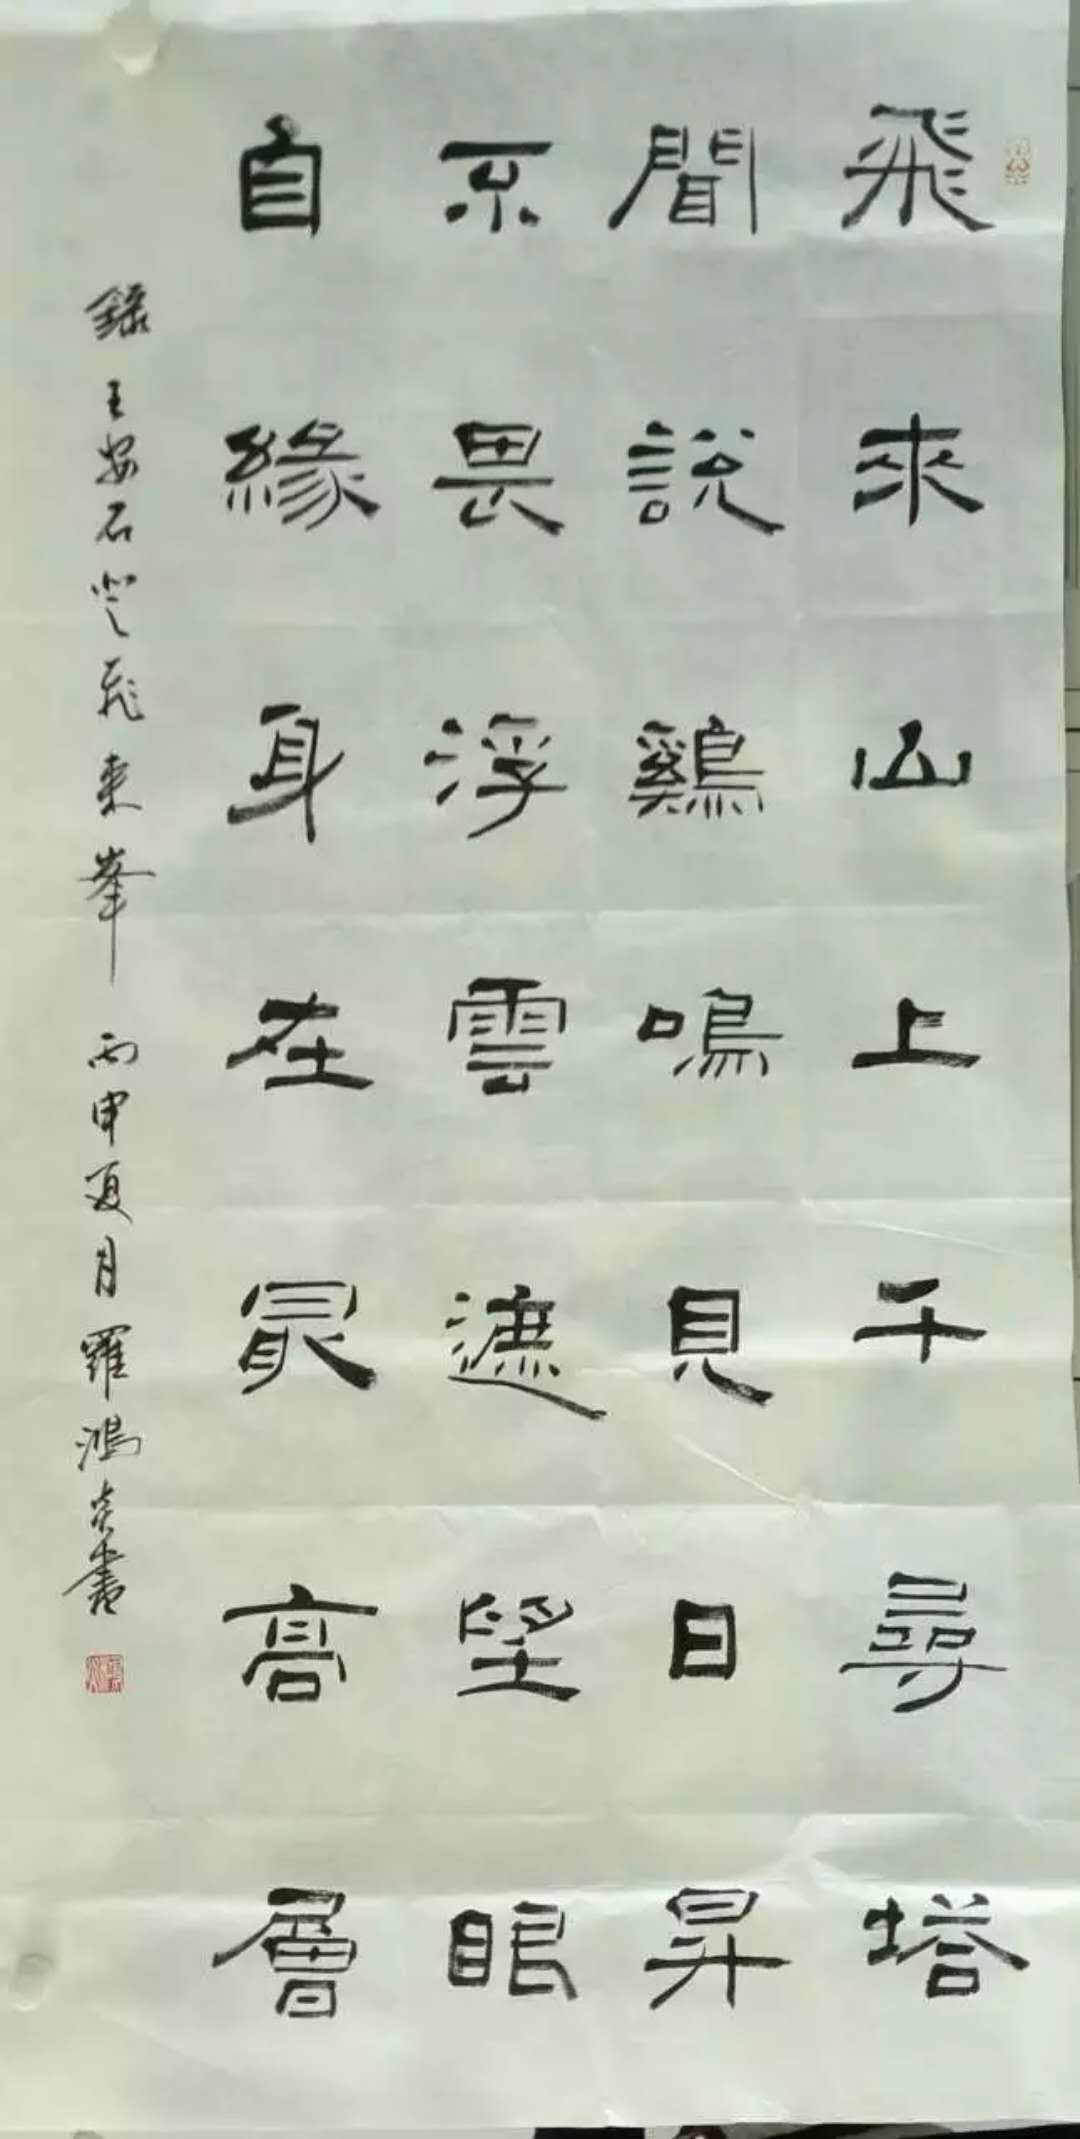 飛來山上千尋塔
聞說鷄鳴見日昇
不畏浮雲遮望眼
自緣身在最高層
錄王安石登飛來峯 丙申夏月羅鴻炎書